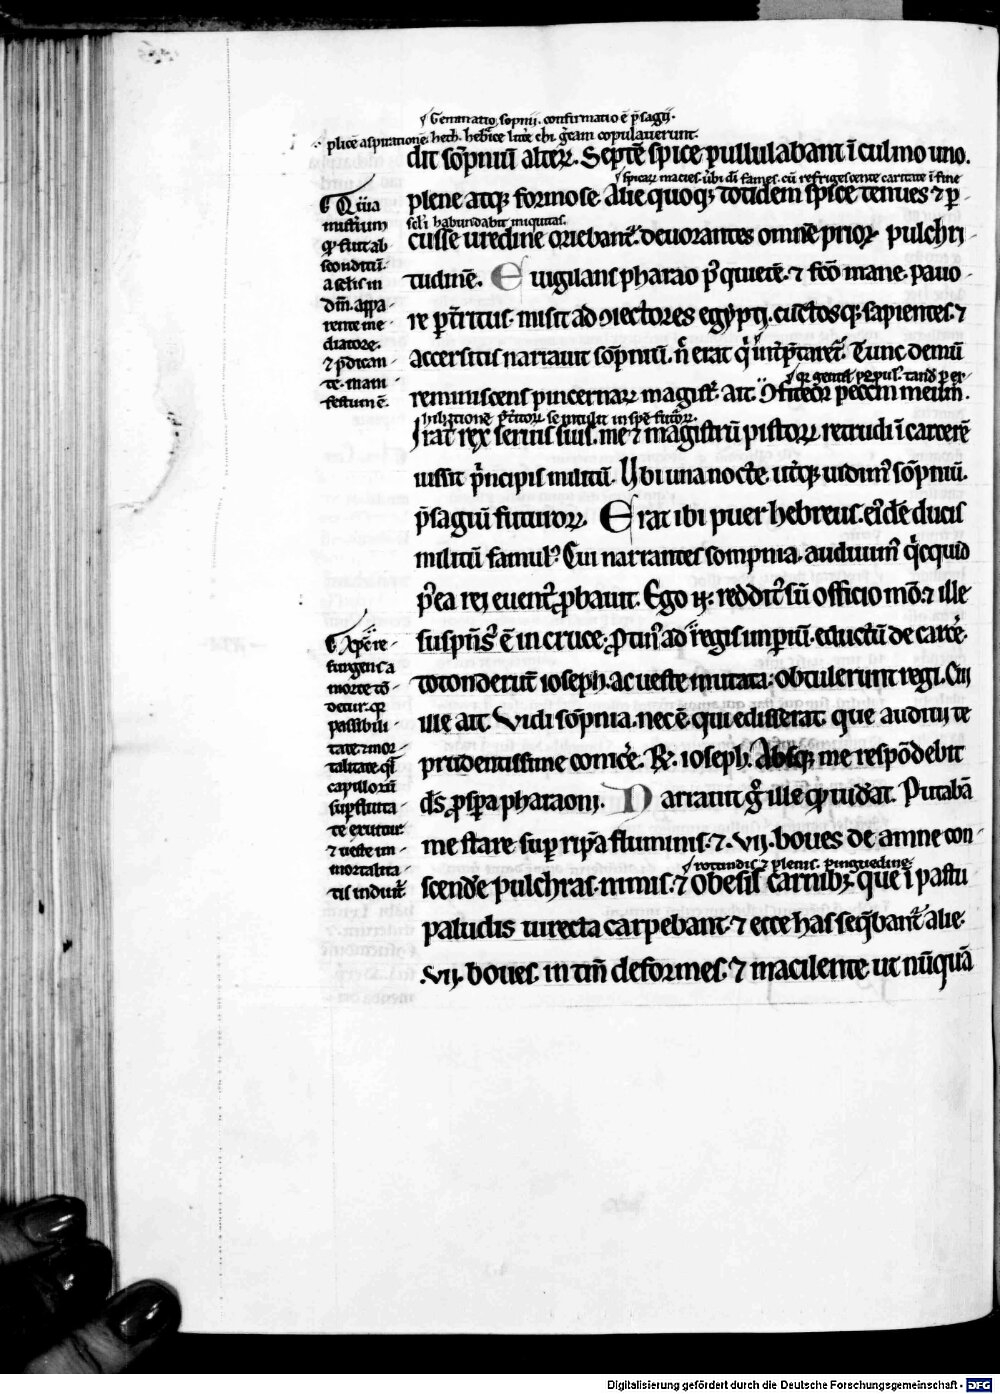 Geminatio sopnij. confirmatio ē p̄sagij.
plicē aspirationē. heth. hebᵃice litt̄e chi. grecam copulauerunt.
dit sōpniū alterꝝ. Septē spice pullulabant ī culmo uno.
spicarꝝ macies. ubi dī fames. cū refrigescente caritate ī fine
plene atqꝫ formose. Alie quoqꝫ totidem spice tenues ⁊ ꝑ-
scl̄i habundabit iniquitas.
cusse uredine oriebant᷑. deuorantes omnē prioꝝ pulchri-
tudinē. Euigilans pharao p̄ quietē. ⁊ fcō mane. pauo-
re ꝑt̄ritus. misit ad ꝯiectores egypti. cūctosqꝫ sapientes. ⁊
accersitis narrauit sōpniū. n̄ erat qͥ int̄p̄taret᷑. Tunc demū
qꝛ gentiū pp̄ls. tand̄ ꝑ er-
reminiscens pincernarꝝ magist̄. ait. Ꝯfiteor pecc̄m meum.
Irat᷒ rex seruis suis. me ⁊ magistrū pistorꝝ retrudi ī carcerē
iussit pͥncipis militū. Ubi una nocte. ut̄qꝫ uidimꝰ sōpniū.
p̄sagiū futurorꝝ. Erat ibi puer hebreus. eiꝰdē ducis
militū famulꝰ. Cui narrantes sompnia. audiuimꝰ qͥcquid
p̄ ea rei euentꝰ ꝓbauit. Ego .n. redditꝰ sū officio mō. ⁊ ille
suspēsꝰ ē in cruce. ꝓtinꝰ ad regis imꝑiū. eductū de carc̄e.
totonderūt ioseph. ac ueste mutata. obtulerunt regi. Cui
ille ait. Vidi sōpnia. nec ē qui edisserat. que audiui te
prudentissime conic̄e. R̄. ioseph. Absqꝫ me respōdebit
d̄s ꝓsꝑa pharaoni. Narrauit g̊ ille qͩ uid̄at. Putabā
me stare suꝑ ripā fluminis. ⁊ .vij. boues de amne con-
rotundis ⁊ plenis. pinguedine.
scend̄e pulchras nimis. ⁊ obesis carnibꝫ. que ī pastu
paludis uirecta carpebant. ⁊ ecce has seq̄bant᷑ alie.
.vij. boues. in tm̄ deformes. ⁊ macilente ut nūquā
Quia
misteriū
qͩ fuit ab
sconditū.
a sclis in
dm̄. appa-
rente me-
diatore.
⁊ p̄dican-
te. mani-
festum ē.
Xp̄c re-
surgens a
morte tō-
detur. qꝛ
passibili-
tate. ⁊ mor-
talitate. qͣsi
capillorū
suꝑfluita-
te exuitur.
⁊ ueste im-
mortalita-
tis induit᷑.
Digitalisierung gefördert durch die Deutsche Forschungsgemeinschaft - DFG